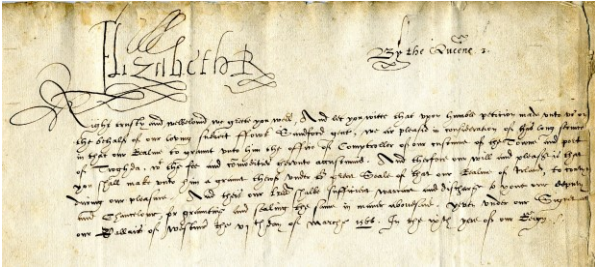 Elizabeth R
By the Queene
Right trusty and welbeloved we grete you well. And let you witte that upon humble peticion made unto us on
the behalf of our loving subiect Sandford gent, we are pleased in consideracion of his long service
in that our Realme to graunt unto him the office of Comptroller of our custume of the Towne and port
of the fee and accustomed. And therfore our will and pleasure is that
you shall make unto him a graunt therof under the Great Seale of that our Realme of Ireland, to
during our pleasure. And thes our shalbe sufficient warrant and discharge to you our deputy
and Chauncelor, for graunting and sealing the same in maner abovesaid. Yeven under our Signet
our Pallais of the day of Marche In the yere of our Reign.